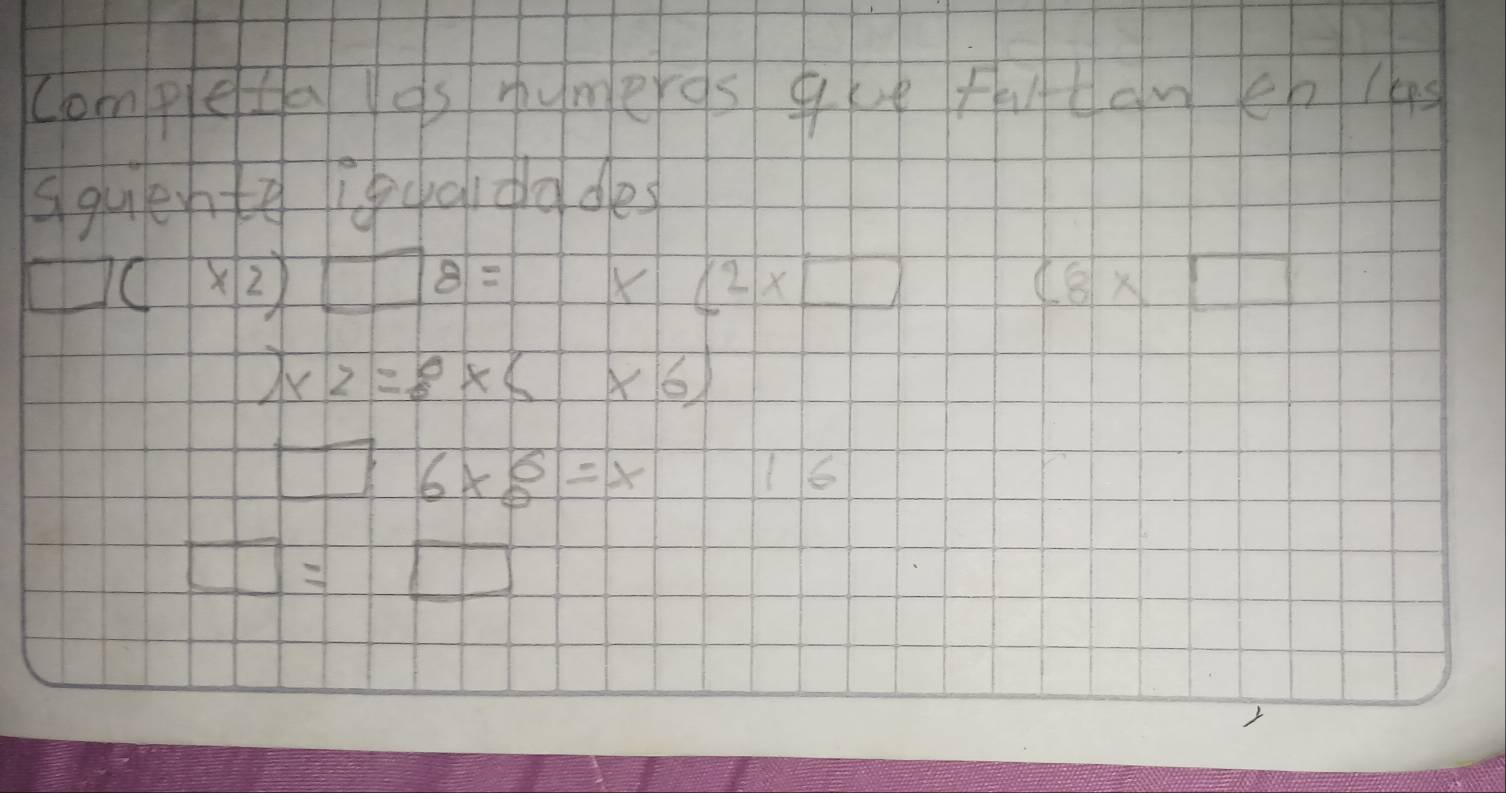 Completa los numeros que faltan en las
siguiente igualdades
□( x2) □ 8 = x (2x□ (8x □
)x2=8x( x6)
□ 6x = x 16
□ = □